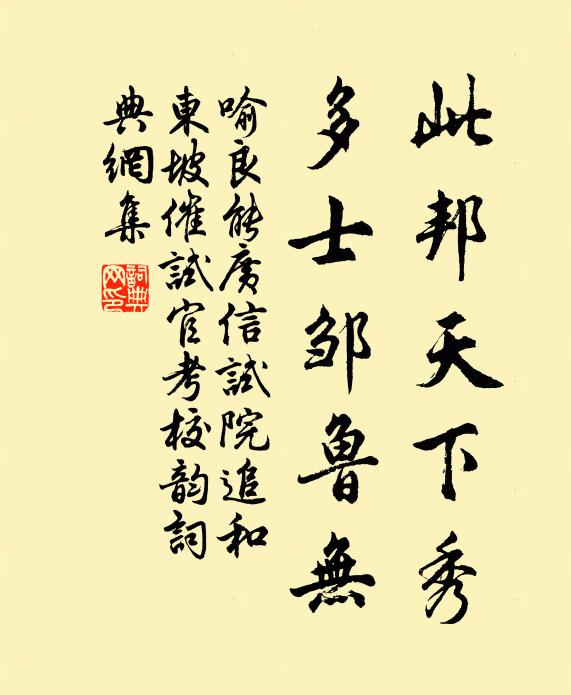 此邦天下秀
多士邹魯無
喻良能廣信試院追和
東坡催試官考校韵詞
典網集
詞典网印